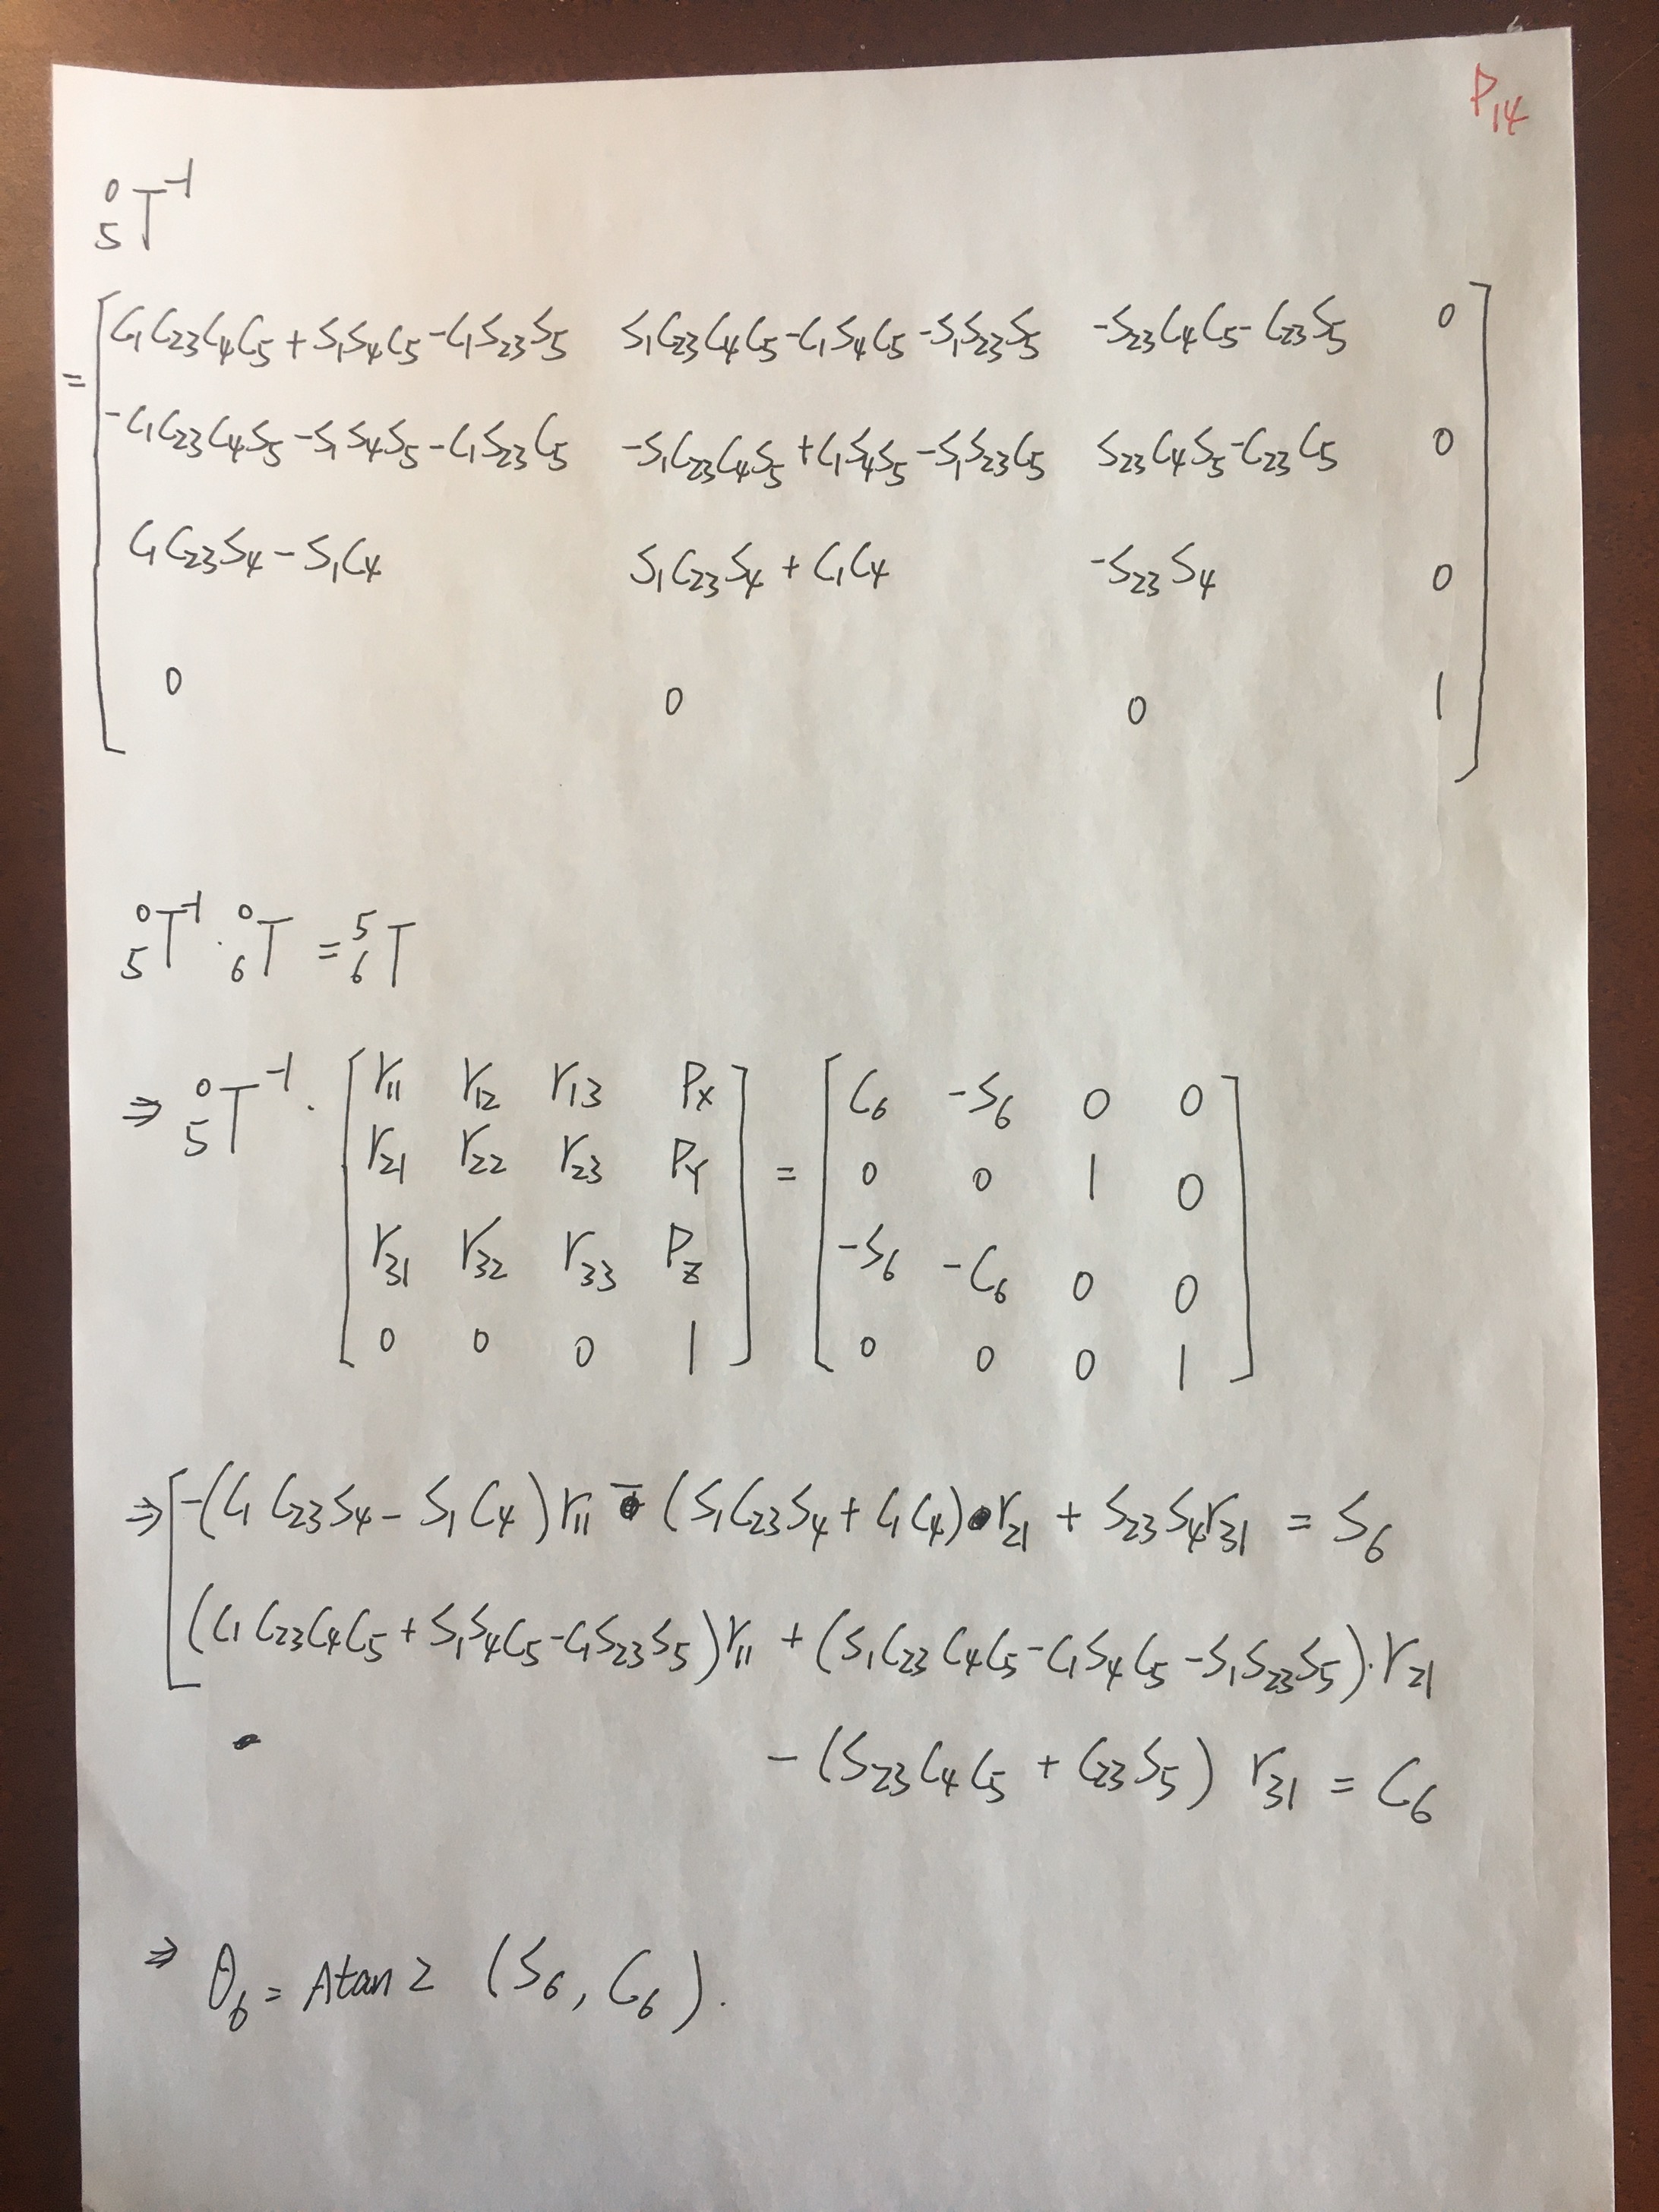 P₁₄
⁰₅T⁻¹
= [ C₁C₂₃C₄C₅ + S₁S₄C₅ - C₁S₂₃S₅   S₁C₂₃C₄C₅ - C₁S₄C₅ - S₁S₂₃S₅   -S₂₃C₄C₅ - C₂₃S₅   0
-C₁C₂₃C₄S₅ - S₁S₄S₅ - C₁S₂₃C₅   -S₁C₂₃C₄S₅ + C₁S₄S₅ - S₁S₂₃C₅   S₂₃C₄S₅ - C₂₃C₅   0
C₁C₂₃S₄ - S₁C₄   S₁C₂₃S₄ + C₁C₄   -S₂₃S₄   0
0   0   0   1 ]
⁰₅T⁻¹ · ⁰₆T = ⁵₆T
⇒ ⁰₅T⁻¹ · [ r₁₁ r₁₂ r₁₃ Px   = [ C₆ -S₆ 0 0
r₂₁ r₂₂ r₂₃ PY   0 0 1 0
r₃₁ r₃₂ r₃₃ Pz   -S₆ -C₆ 0 0
0 0 0 1 ]   0 0 0 1 ]
⇒ [ -(C₁C₂₃S₄ - S₁C₄)r₁₁ - (S₁C₂₃S₄ + C₁C₄)r₂₁ + S₂₃S₄r₃₁ = S₆
(C₁C₂₃C₄C₅ + S₁S₄C₅ - C₁S₂₃S₅)r₁₁ + (S₁C₂₃C₄C₅ - C₁S₄C₅ - S₁S₂₃S₅)·r₂₁
- (S₂₃C₄C₅ + C₂₃S₅) r₃₁ = C₆
⇒ θ₆ = Atan2 (S₆, C₆).